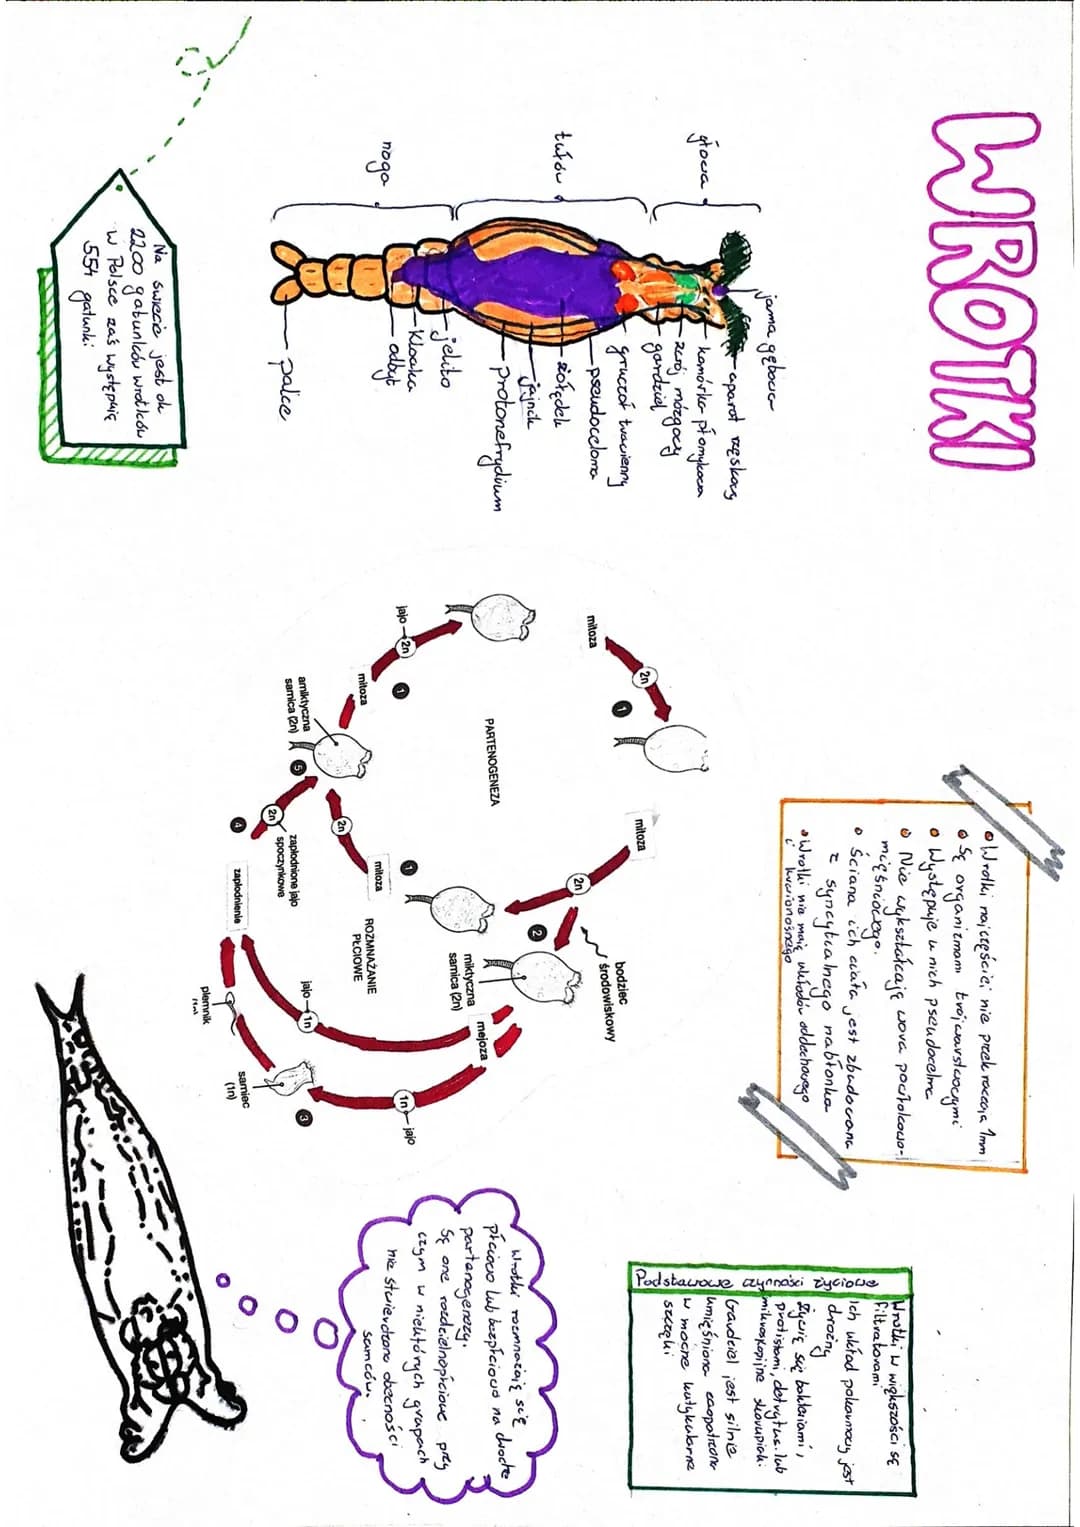 WROTKI
jama gębowa
aparat rzęskowy
komórka płomykowa
zwój mózgowy
gardziel
gruczoł trawienny
pseudoceloma
żołądek
jajnik
protonefrydium
jelito
kloaka
odbyt
palce
głowa
tułów
noga
Na świecie jest ok
2200 gatunków wrotków
w Polsce zaś występują
554 gatunki.
• Wrotki najczęściej nie przekraczają 1mm
• Są organizmami trójwarstwowymi
• Występuje u nich pseudocelma
• Nie wykształcają wora powłokowo-
mięśniowego.
• Ściana ich ciała jest zbudowana
z syncytialnego nabłonka
• Wrotki nie mają układów oddechowego
i krwionośnego
mitoza
2n
1
mitoza
2n
bodziec
środowiskowy
2
miktyczna
samica (2n)
PARTENOGENEZA
jajo
2n
1
mitoza
amiktyczna
samica (2n)
5
2n
mitoza
1
ROZMNAŻANIE
PŁCIOWE
zapłodnione jajo
spoczynkowe
2n
4
zapłodnienie
mejoza
jajo
1n
1n
jajo
plemnik
samiec
(1n)
3
Podstawowe czynności życiowe
Wrotki w większości są
filtratorami
Ich układ pokarmowy jest
drożny
Żywią się bakteriami,
protistami, detrytus. lub
mikroskopijne skorupiaki.
Gardziel jest silnie
umięśniona zaopatrzona
w mocne kutykularne
szczęki
Wrotki rozmnażają się
płciowo lub bezpłciowo na drodze
partenogenezy.
Są one rozdzielnopłciowe przy
czym w niektórych grupach
nie stwierdzono obecności
samców.